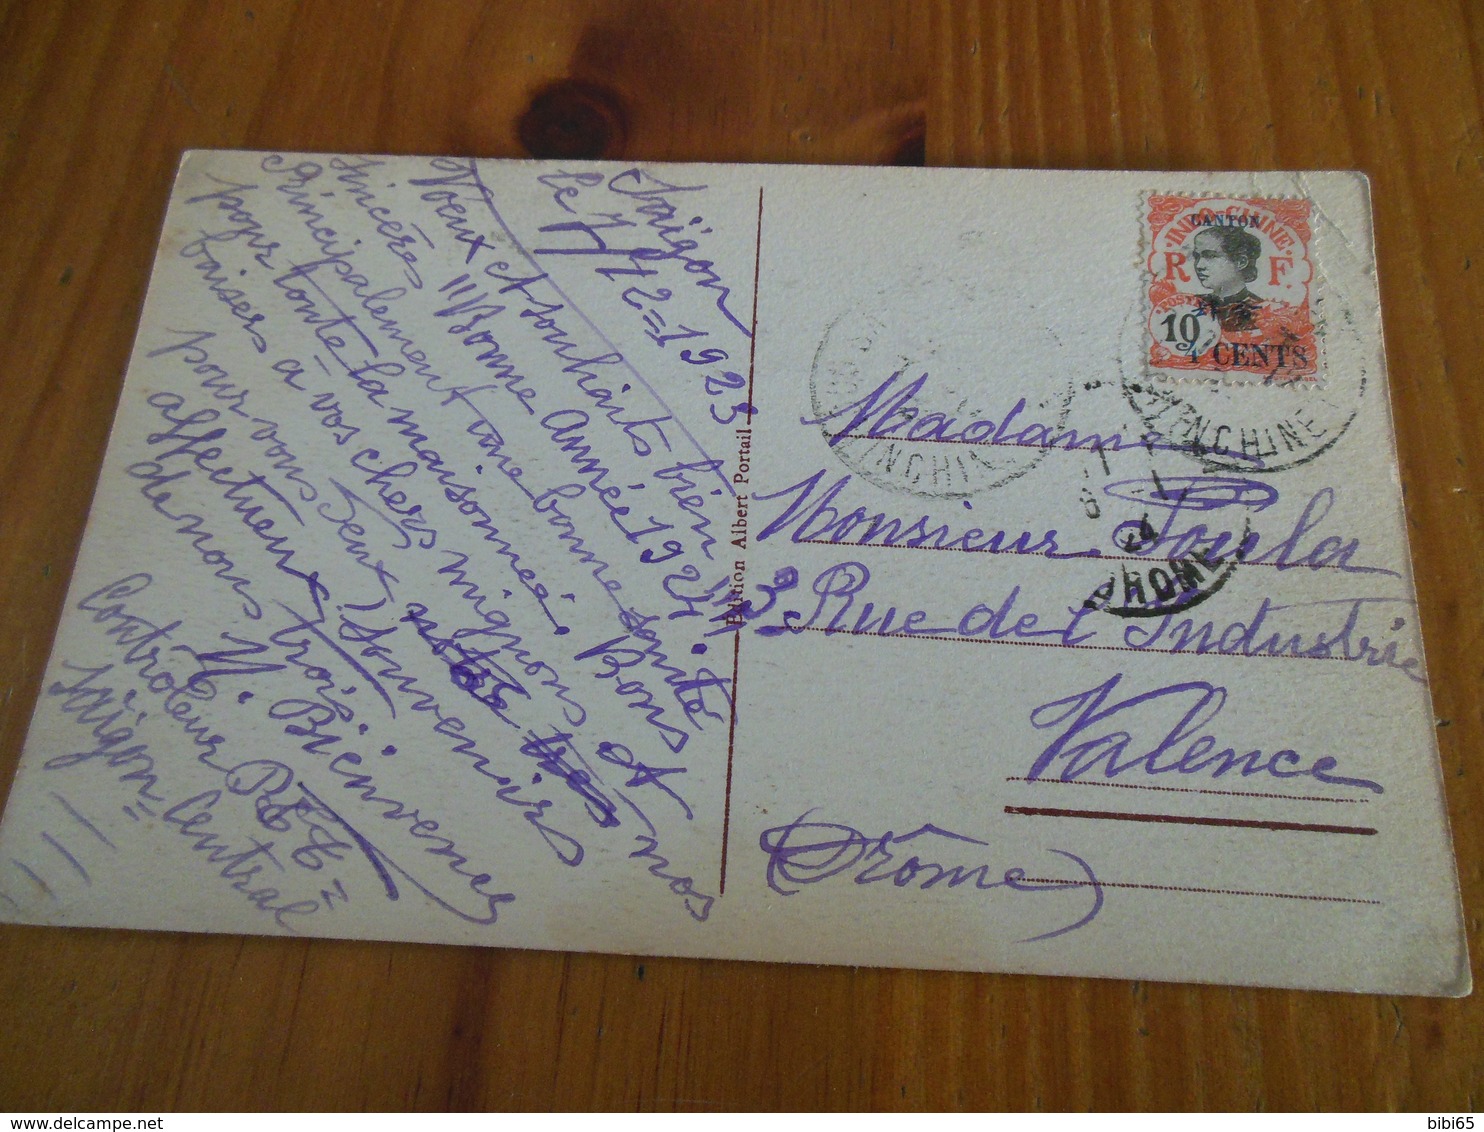 Saïgon
le 7/12=1923
Vœux et souhaits bien
sincères "Bonne année 1924"
principalement une bonne santé
pour toute la maisonnée. Bons
baisers à vos chers mignons et
pour vous deux Souvenirs
affectueux nos
de nous trois.
N. Bienvenue
Contrôleur P&T=
Saïgon=Central
Edition Albert Portail
INDO-CHINE
CANTON
R F
POSTES
10
4 CENTS
COCHINCHINE
COCHINCHINE
24
DROME
Madame
Monsieur Foula
3 Rue de l'Industrie
Valence
(Drôme)
bibi65